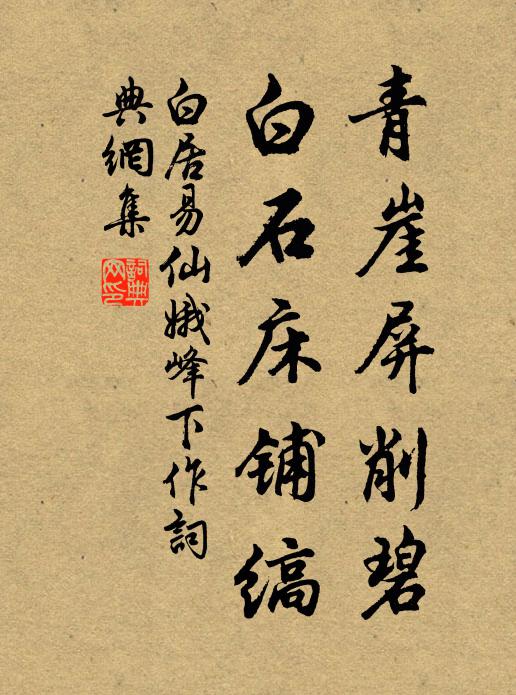 青崖屏削碧
白石床铺缟
白居易仙娥峰下作詞
典網集
詞典网印